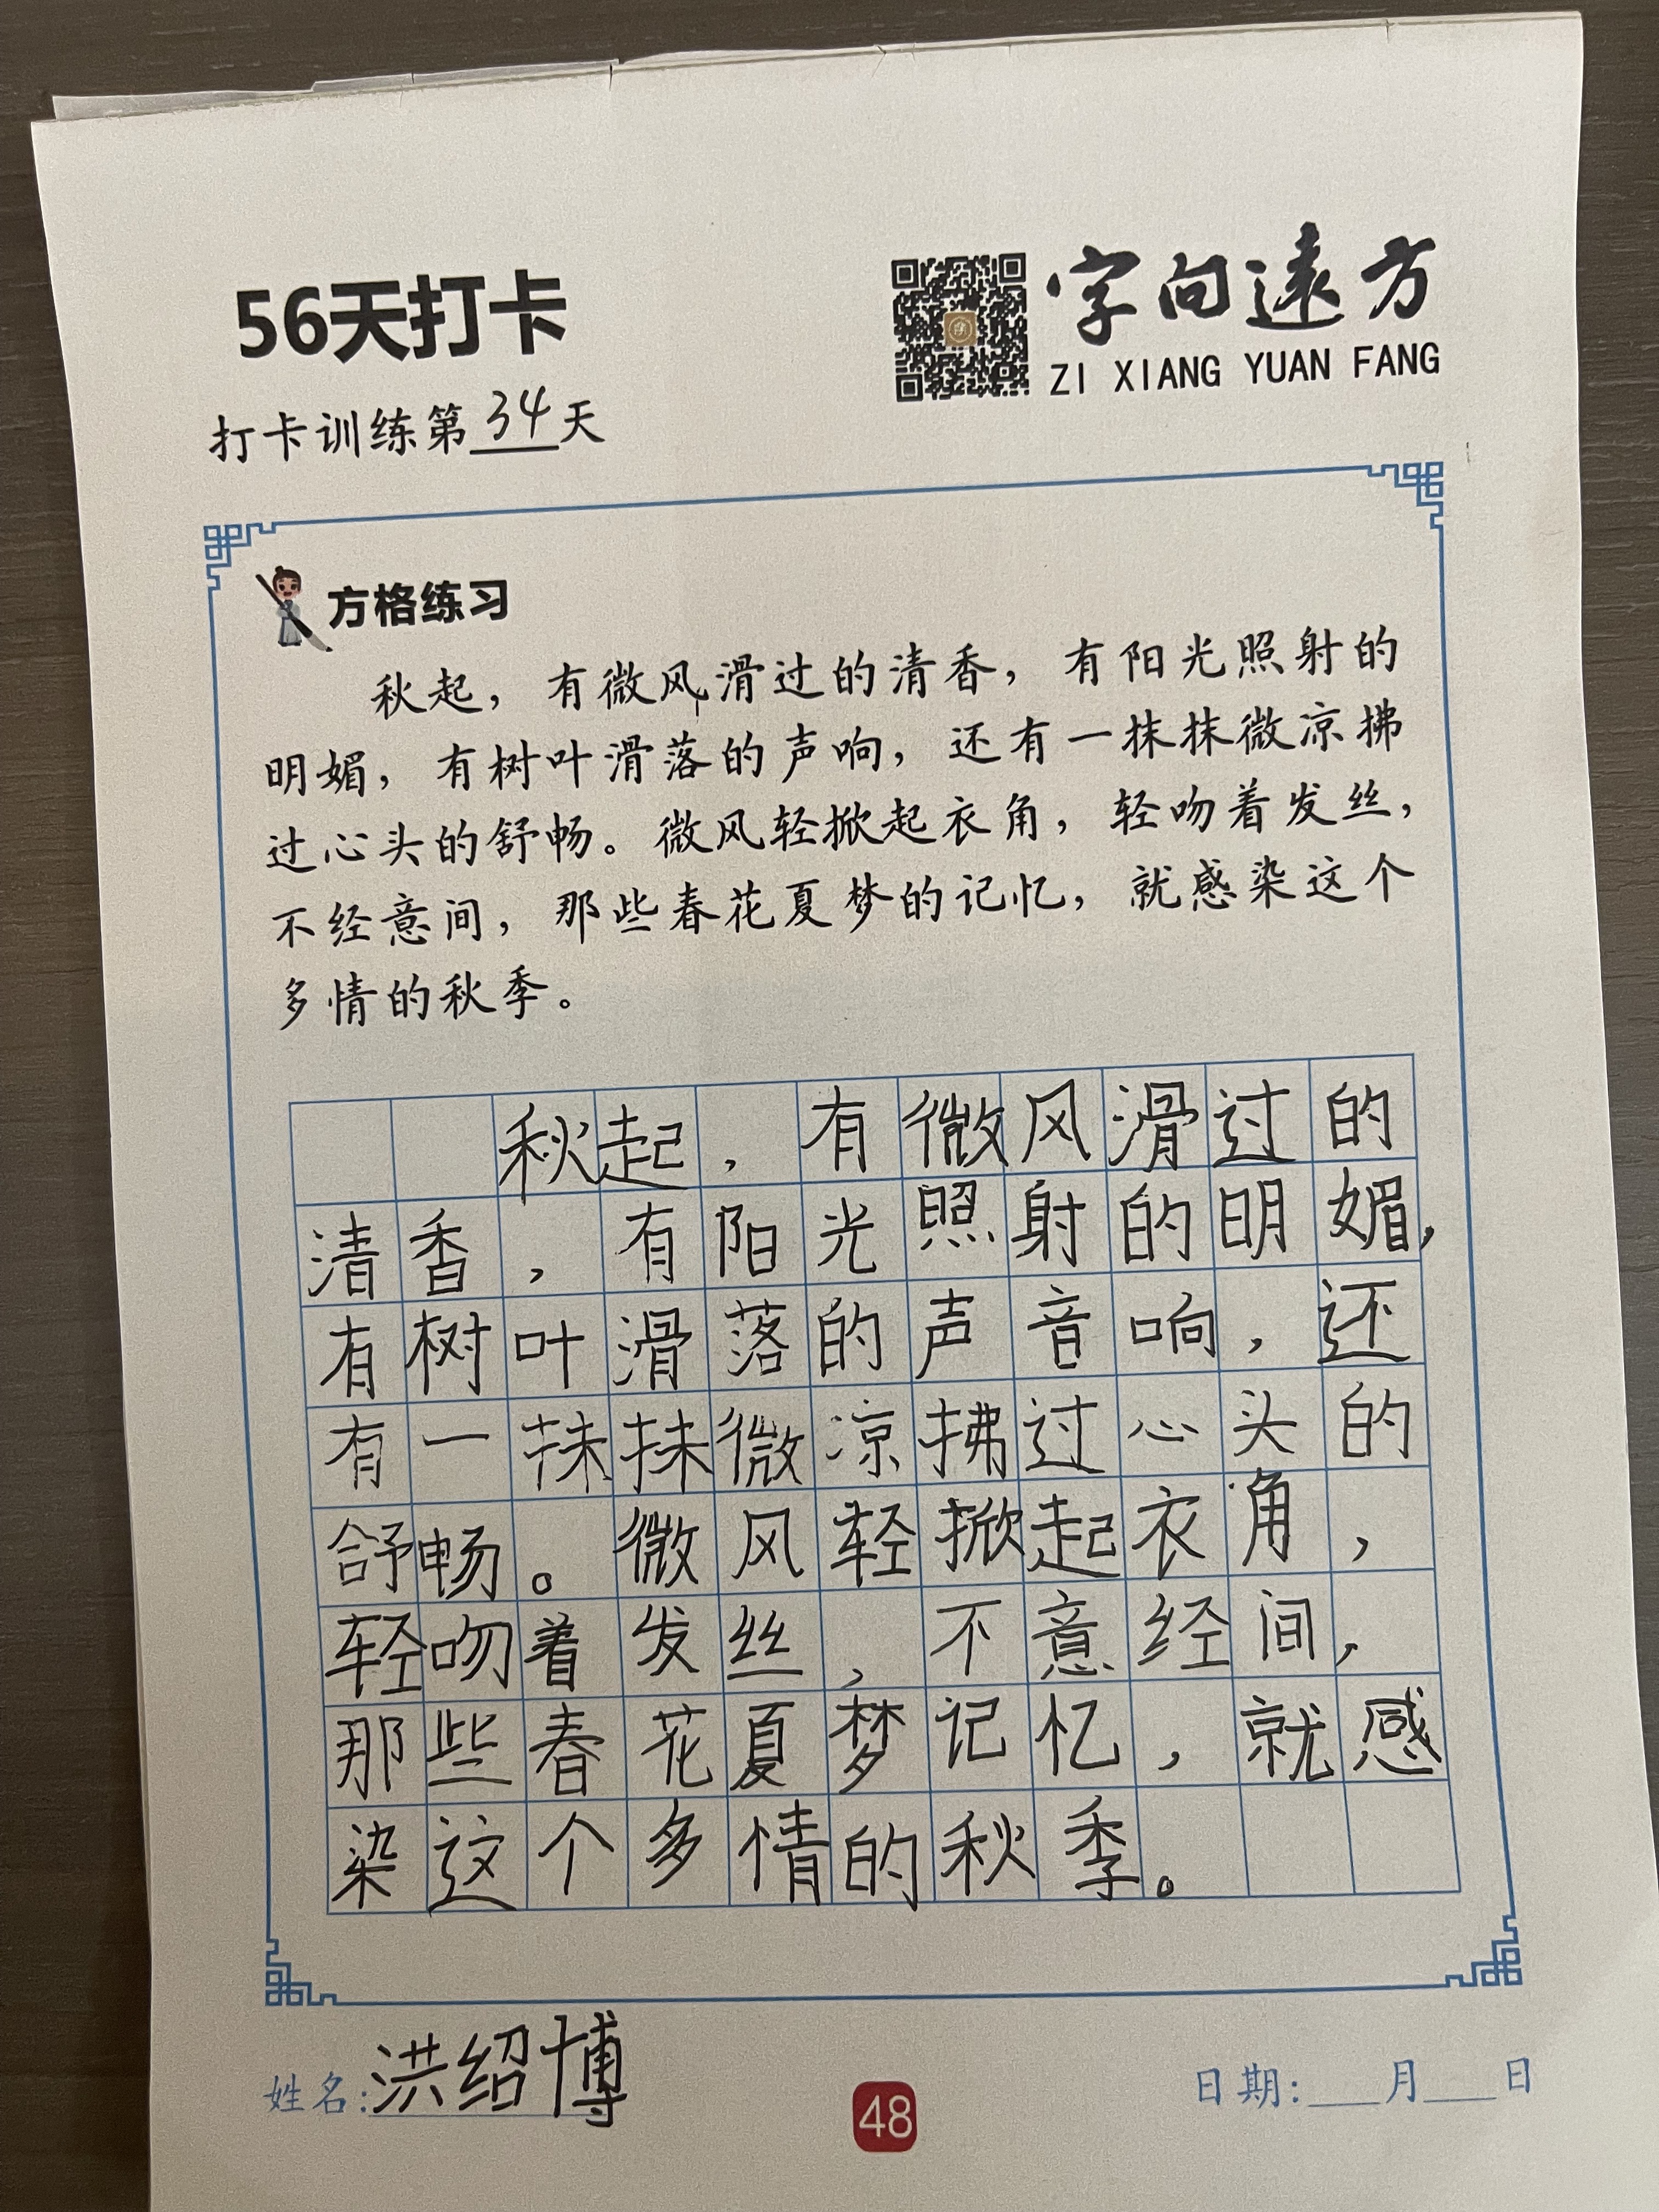 56天打卡
字向遠方
ZI XIANG YUAN FANG
打卡训练第34天
方格练习
秋起，有微风滑过的清香，有阳光照射的
明媚，有树叶滑落的声响，还有一抹抹微凉拂
过心头的舒畅。微风轻掀起衣角，轻吻着发丝，
不经意间，那些春花夏梦的记忆，就感染这个
多情的秋季。
秋起，有微风滑过的
清香，有阳光照射的明媚，
有树叶滑落的声音响，还
有一抹抹微凉拂过心头的
舒畅。微风轻掀起衣角，
轻吻着发丝，不意经间，
那些春花夏梦记忆，就感
染这个多情的秋季。
姓名：洪绍博
48
日期：___月___日